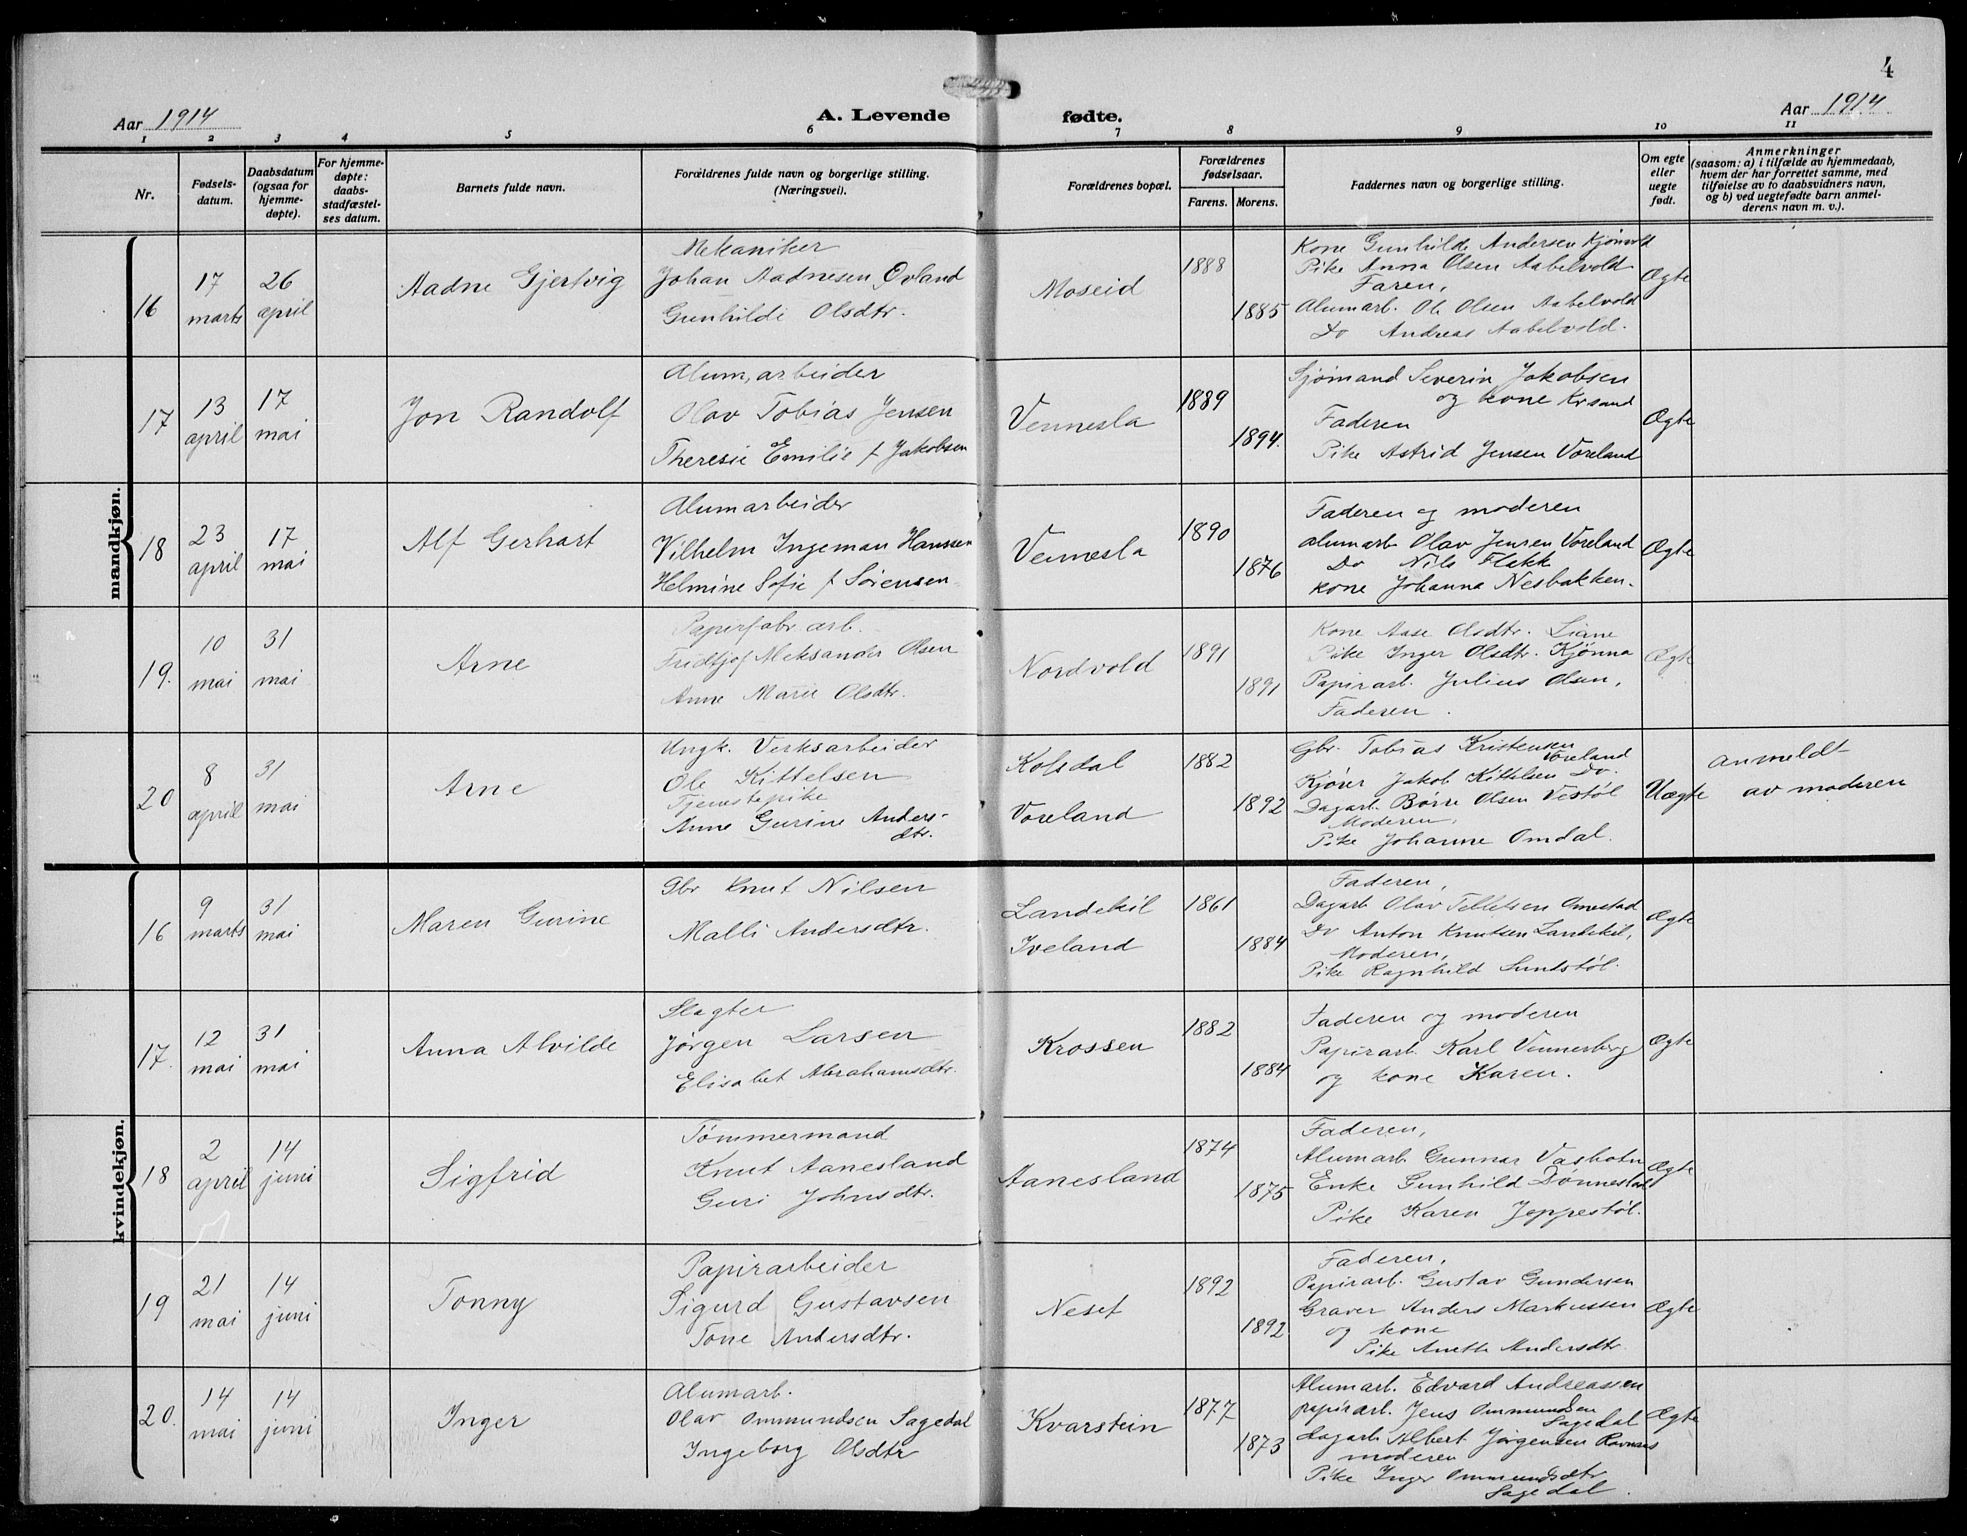 4
Aar 1914
A. Levende fødte.
Aar 1914
1 2 3 4 5 6 7 8 9 10 11
Nr.
Fødsels-
datum.
Daabsdatum
(ogsaa for
hjemme-
døpte).
For hjemme-
døpte:
daabs-
stadfæstel-
ses datum.
Barnets fulde navn.
Forældrenes fulde navn og borgerlige stilling.
(Næringsvei).
Forældrenes bopæl.
Forældrenes
fødselsaar.
Farens. Morens.
Faddernes navn og borgerlige stilling.
Om egte
eller
uegte
født.
Anmerkninger
(saasom: a) i tilfælde av hjemmedaab,
hvem der har forrettet samme, med
tilføielse av to daabsvidners navn,
og b) ved uegtefødte barn anmel-
derens navn m. v.).
mandkjøn.
16
17
marts
26
april
Aadne Gjertvig
Mekaniker
Johan Aadnesen Øvland
Gunhilde Olsdtr.
Moseid
1888
1885
Kone Gunhilde Andersen Kjønvold
Pike Anna Olsen Aabelvold
Faren,
Alumarb. Ole Olsen Aabelvold
Do Andreas Aabelvold.
Ægte
17
13
april
17
mai
Jon Randolf
Alum, arbeider
Olav Tobias Jensen
Theresie Emilie f Jakobsen
Vennesla
1889
1894.
Sjømand Severin Jakobsen
og kone Krsand
Faderen
Pike Astrid Jensen Voreland
Ægte
18
23
april
17
mai
Alf Gerhart
Alumarbeider
Vilhelm Ingeman Hanssen
Helmine Sofie f Sørensen
Vennesla
1890
1876
Faderen og moderen
alumarb Olav Jensen Voreland
Do Nils Flakk
kone Johanna Nesbakken.
Ægte
19.
10
mai
31
mai
Arne
Papirfabr. arb.
Fridtjof Aleksander Olsen
Anne Marie Olsdtr.
Nordvold
1891
1891
Kone Aase Olsdtr. Liane
Pike Inger Olsdtr. Kjønna
Papirarb. Julius Olsen,
Faderen.
Ægte
20
8
april
31
mai
Arne
Ungk. Verksarbeider
Ole Kittelsen
Tjenestepike
Anne Gurine Anders-
dtr.
Kolsdal
Voreland
1882
1892
Gbr. Tobias Kristensen
Voreland
Kjører Jakob Kittelsen Do.
Dagarb Børre Olsen Vestøl
Moderen,
Pike Johanne Omdal.
Uægte
anmeldt
av moderen
kvindekjøn.
16
9
marts
31
mai
Maren Gurine
Gbr Knut Nilsen
Malli Andersdtr.
Landekil
Iveland
1861
1884
Faderen,
Dagarb Olav Tellefsen Omestad
Do Anton Knutsen Landekil,
Moderen,
Pike Ragnhild Sundstøl.
Ægte
17.
12
mai
31
mai
Anna Alvilde
Slagter
Jørgen Larsen
Elisabet Abrahamsdtr.
Krossen
1882
1884
Faderen og moderen
Papirarb. Karl Vennerberg
og kone Karen.
Ægte
18
2
april
14
juni
Sigfrid
Tømmermand
Knut Aanesland
Guri Johnsdtr.
Aanesland
1874
1875
Faderen,
Alumarb Gunnar Vasbotn
Enke Gunhild Dønnestad
Pike Karen Jeppestøl.
Ægte
19
21
mai
14
juni
Tonny
Papirarbeider
Sigurd Gustavsen
Tone Andersdtr.
Neset
1892
1892
Faderen,
Papirarb. Gustav Gundersen
Graver Anders Markussen
og kone
Pike Anette Andersdtr.
Ægte
20.
14
mai
14
juni
Inger
Alumarb.
Olav Ommundsen Sagedal
Ingeborg Olsdtr
Kvarstein
1877
1873
Alumarb. Edvard Andreassen
papirarb. Jens Ommundsen
Sagedal
dagarb Albert Jørgensen Ravnaas
moderen
Pike Inger Ommundsdtr
Sagedal.
Ægte